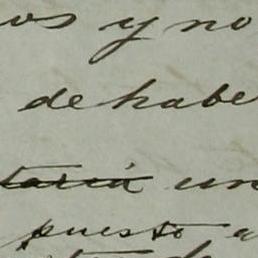 os y no
de habe
taria un
puesto a